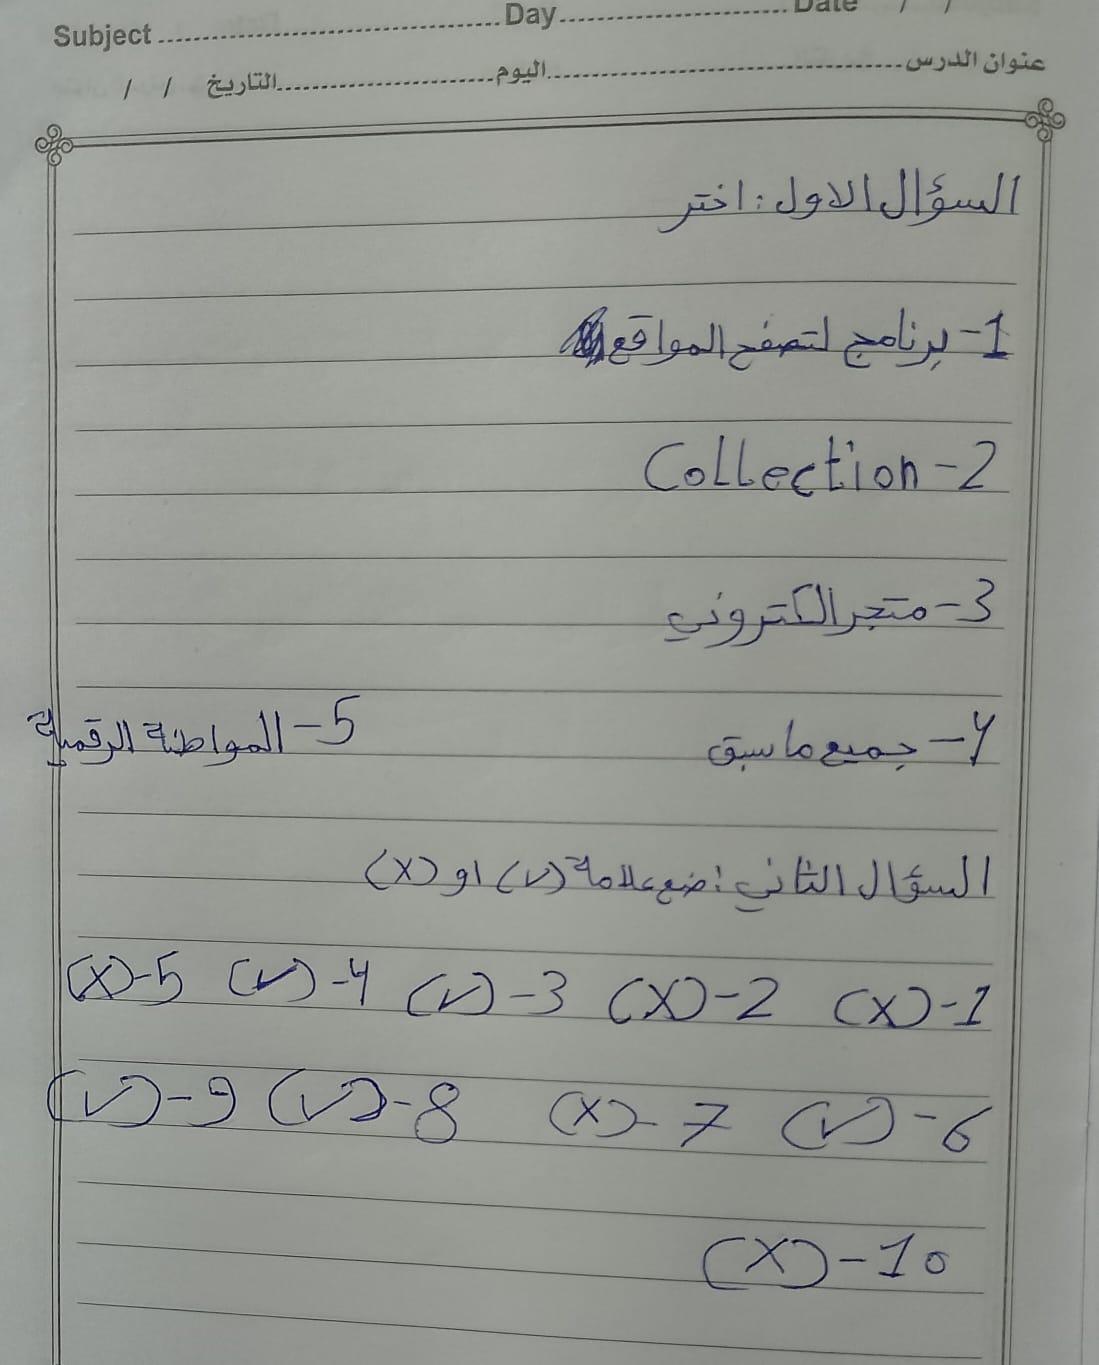 Subject ........ Day ........ Date / /
عنوان الدرس ........ اليوم ........ التاريخ / /
السؤال الاول: اختر
1- برنامج لتصفح المواقع
2- Collection
3- متجر الكتروني
4- جميع ما سبق 5- المواطنة الرقمية
السؤال الثاني: ضع علامة (✓) او (x)
1- (x) 2- (x) 3- (✓) 4- (✓) 5- (x)
6- (✓) 7- (x) 8- (✓) 9- (✓)
10- (x)